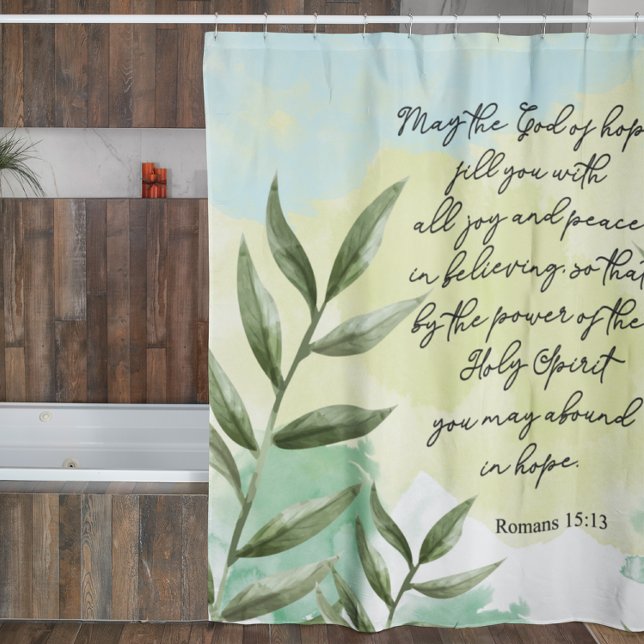 May the God of hop
fill you with
all joy and peace
in believing, so that
by the power of the
Holy Spirit
you may abound
in hope.
Romans 15:13